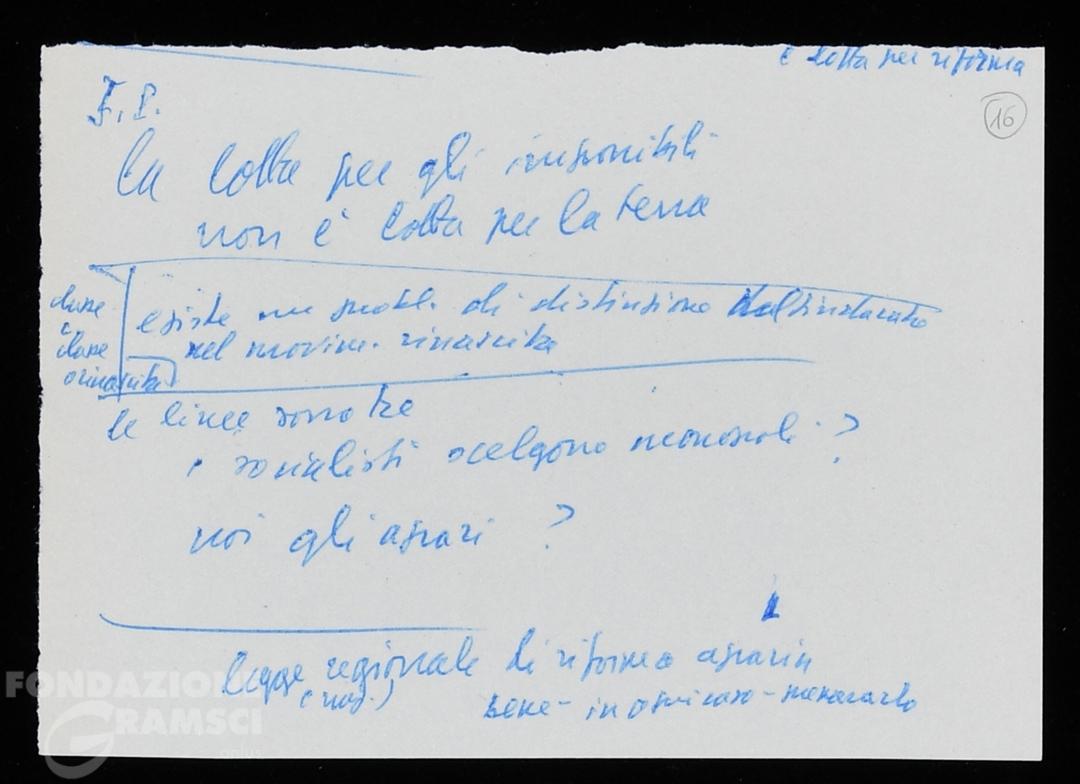 è lotta per riforma
16
F.P.
la lotta per gli imponibili
non è lotta per la terra
classe
e
classe
o rinascita
esiste un probl. di distinzione del sindacato
nel movim. rinascita
le linee sono tre
i socialisti scelgono monopoli?
noi gli agrari?
legge regionale di riforma agraria
(naz.)
bene - in ogni caso -
FONDAZIONE
GRAMSCI
onlus